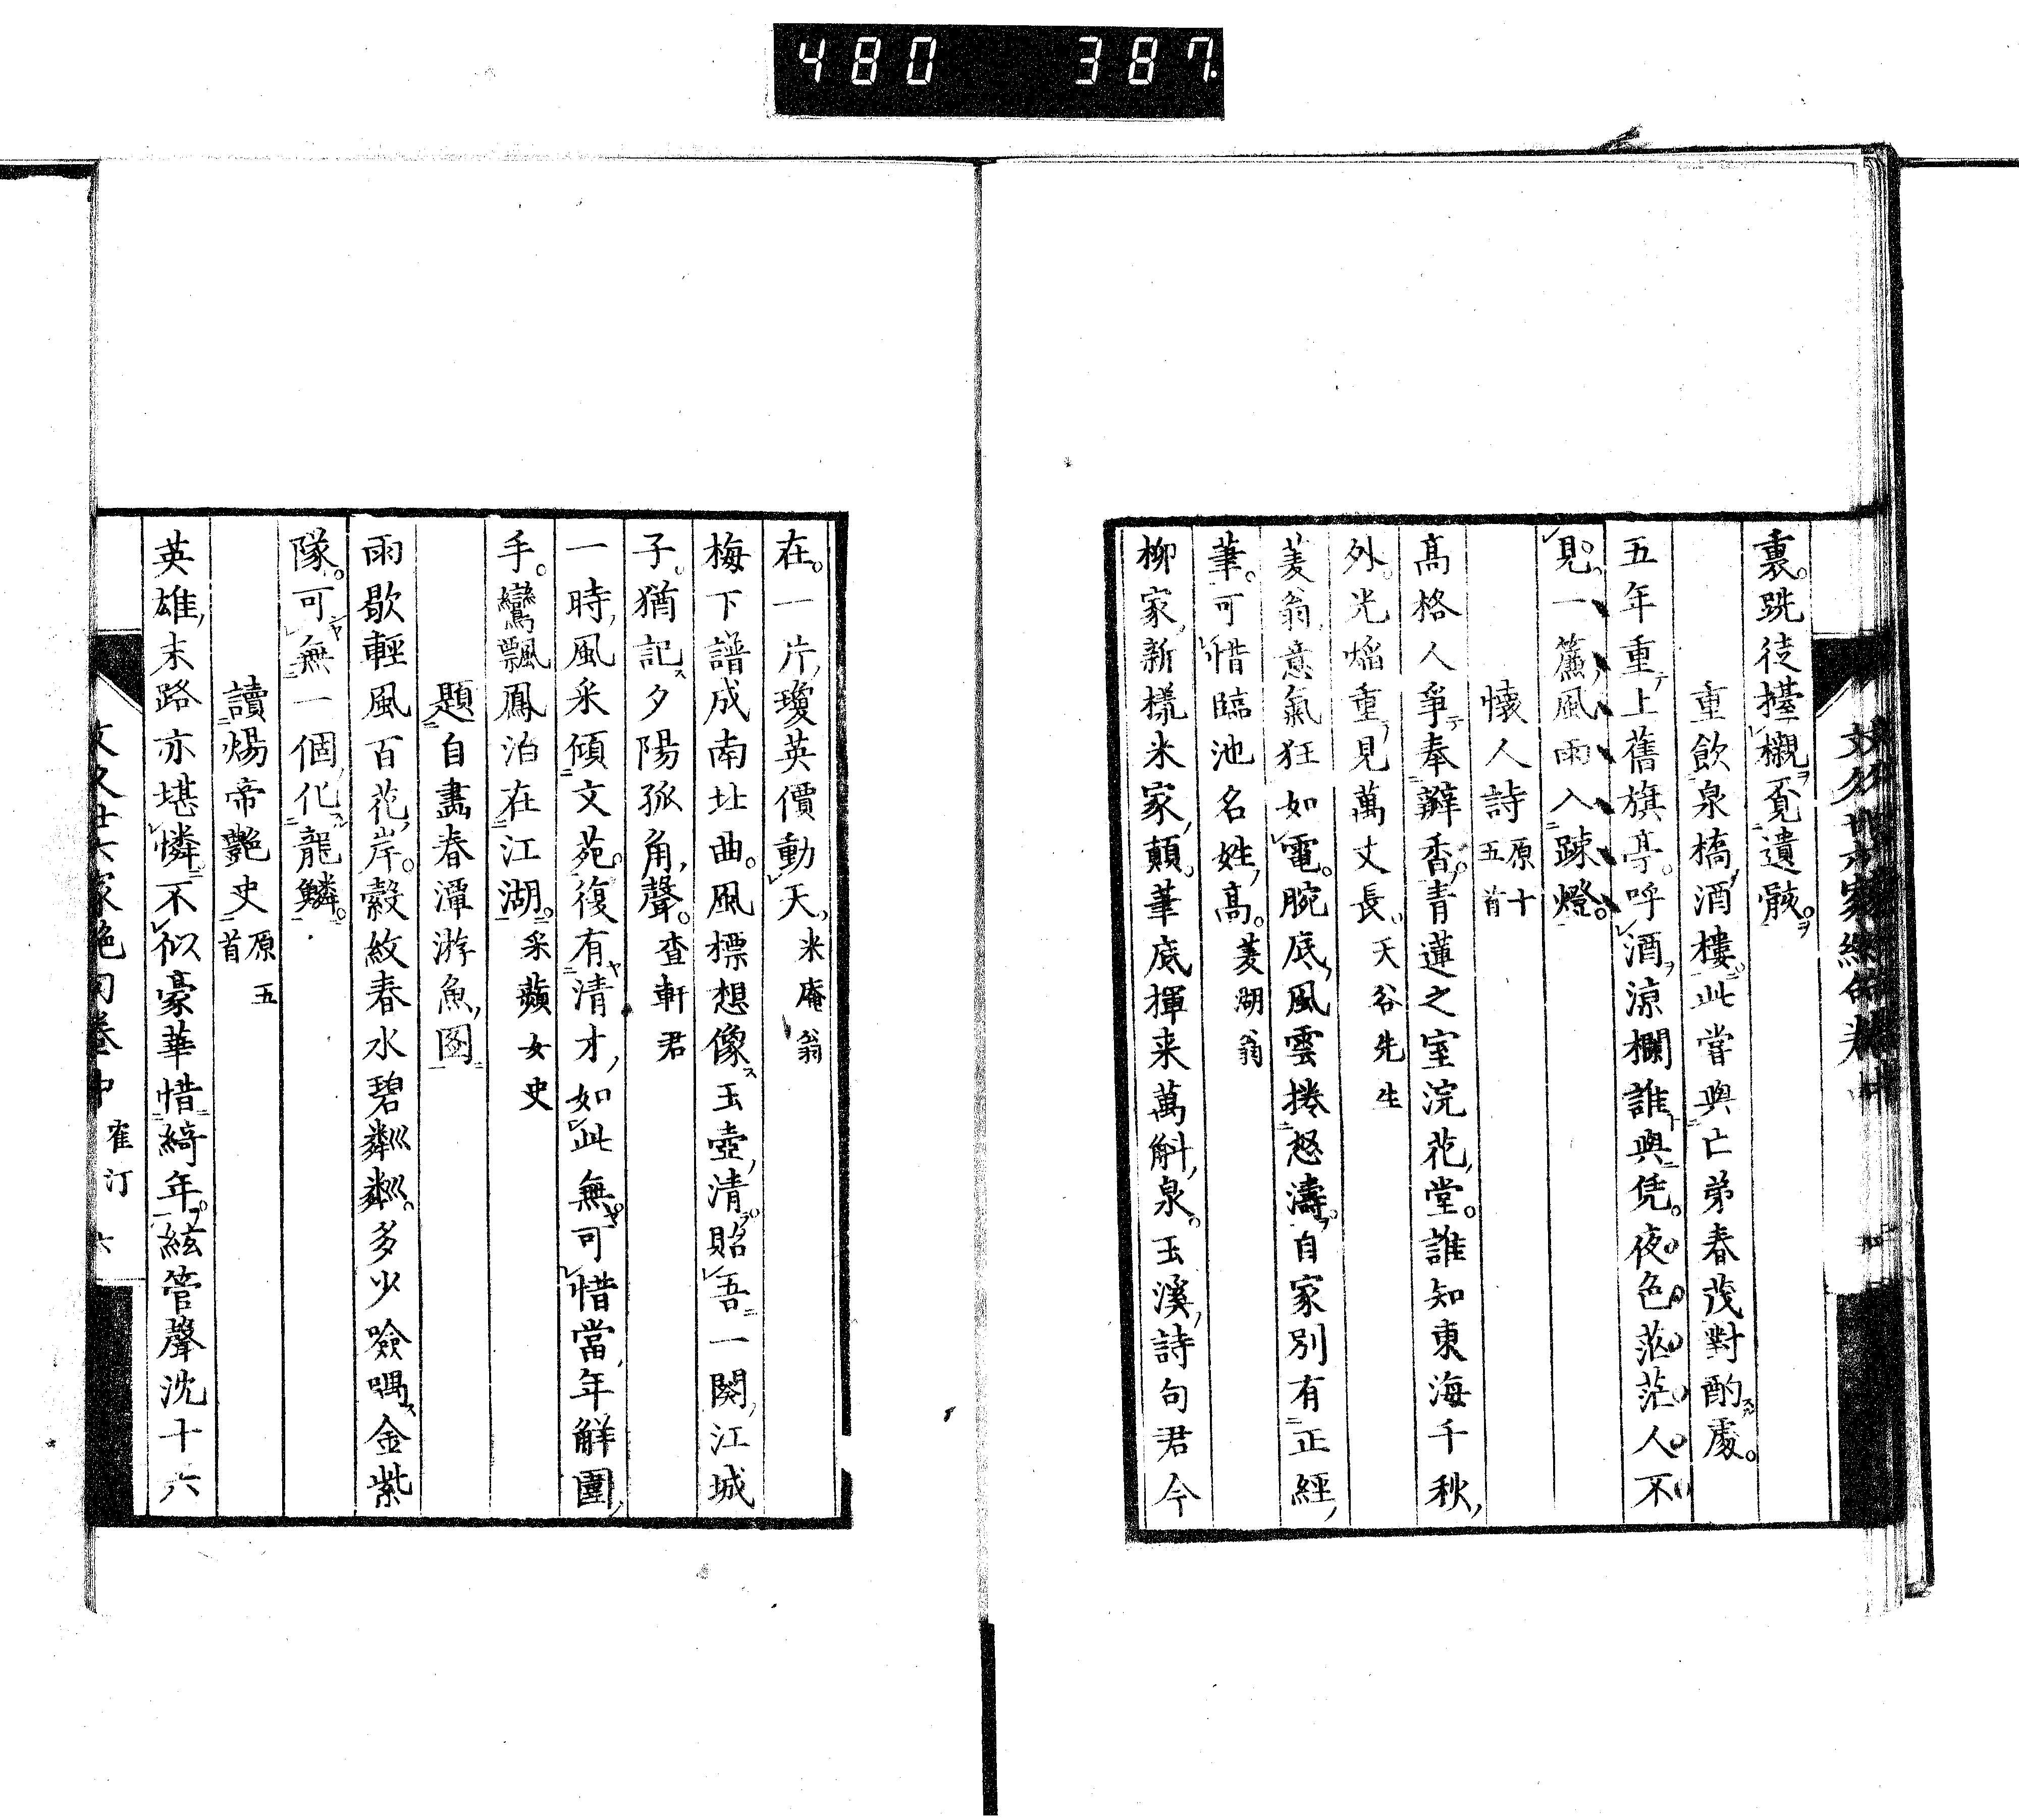 480 387.
裏。跣徒擡櫬覓遺骸。
重飲泉橋酒樓。此嘗與亡弟春茂對酌處。
五年重上舊旗亭。呼酒涼欄誰與凭。夜色茫茫人不
見。一簾風雨入疎燈。
懷人詩 原十五首
高格人爭奉辦香。青蓮之室浣花堂。誰知東海千秋
外。光焰重見萬丈長。天谷先生
菱翁意氣狂如電。腕底風雲捲怒濤。自家別有正經
筆。可惜臨池名姓高。菱湖翁
柳家新樣米家顛。筆底揮来萬斛泉。玉溪詩句君今
在。一片瓊英價動天。米庵翁
梅下譜成南北曲。風標想像玉壺清。貽吾一闋江城
子。猶記夕陽孤角聲。查軒君
一時風采傾文苑。復有清才如此無。可惜當年解圍
手。鸞飄鳳泊在江湖。采蘋女史
題自畫春潭游魚圖
雨歇輕風百花岸。縠紋春水碧粼粼。多少噞喁金紫
隊。可無一個化龍鱗。
讀煬帝艷史 原五首
英雄末路亦堪憐。不似豪華惜綺年。絃管聲沈十六
文久廿六家絶句卷中 崔汀 六